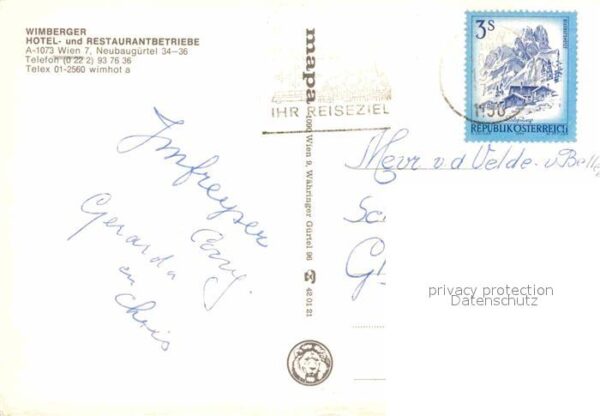 WIMBERGER
HOTEL- und RESTAURANTBETRIEBE
A-1073 Wien 7, Neubaugürtel 34-36
Telefon (0 22 2) 93 76 36
Telex 01-2560 wimhot a
mapa
1090 Wien 9, Währinger Gürtel 96
42 01 21
IHR REISEZIEL
3S
REPUBLIK ÖSTERREICH
Mevr v d Velde - v Belle
Gerarda
en Chris
privacy protection
Datenschutz